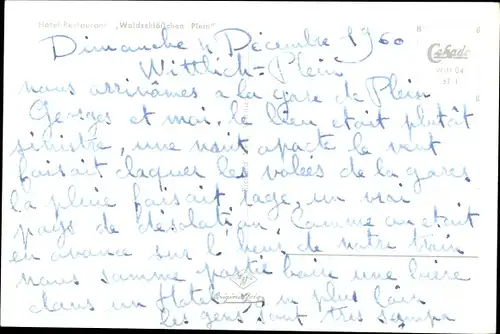 Hotel-Restaurant „Waldschlößchen Plein"
Dimanche 4 Décembre 1960
Cekade
Wittlich-Plein
nous arrivâmes a la gare de Plein
Georges et moi. le lieu etait plutât
sinistre, une nuit opacte le vent
faisait claquer les volées de la gares
la pluie faisait rage, un vrai
pays de désolation. Comme on etait
en avance sur l'heur de notre train
nous somme partie boire une bière
dans un Hotel un plus loin
les gens sont très sympa